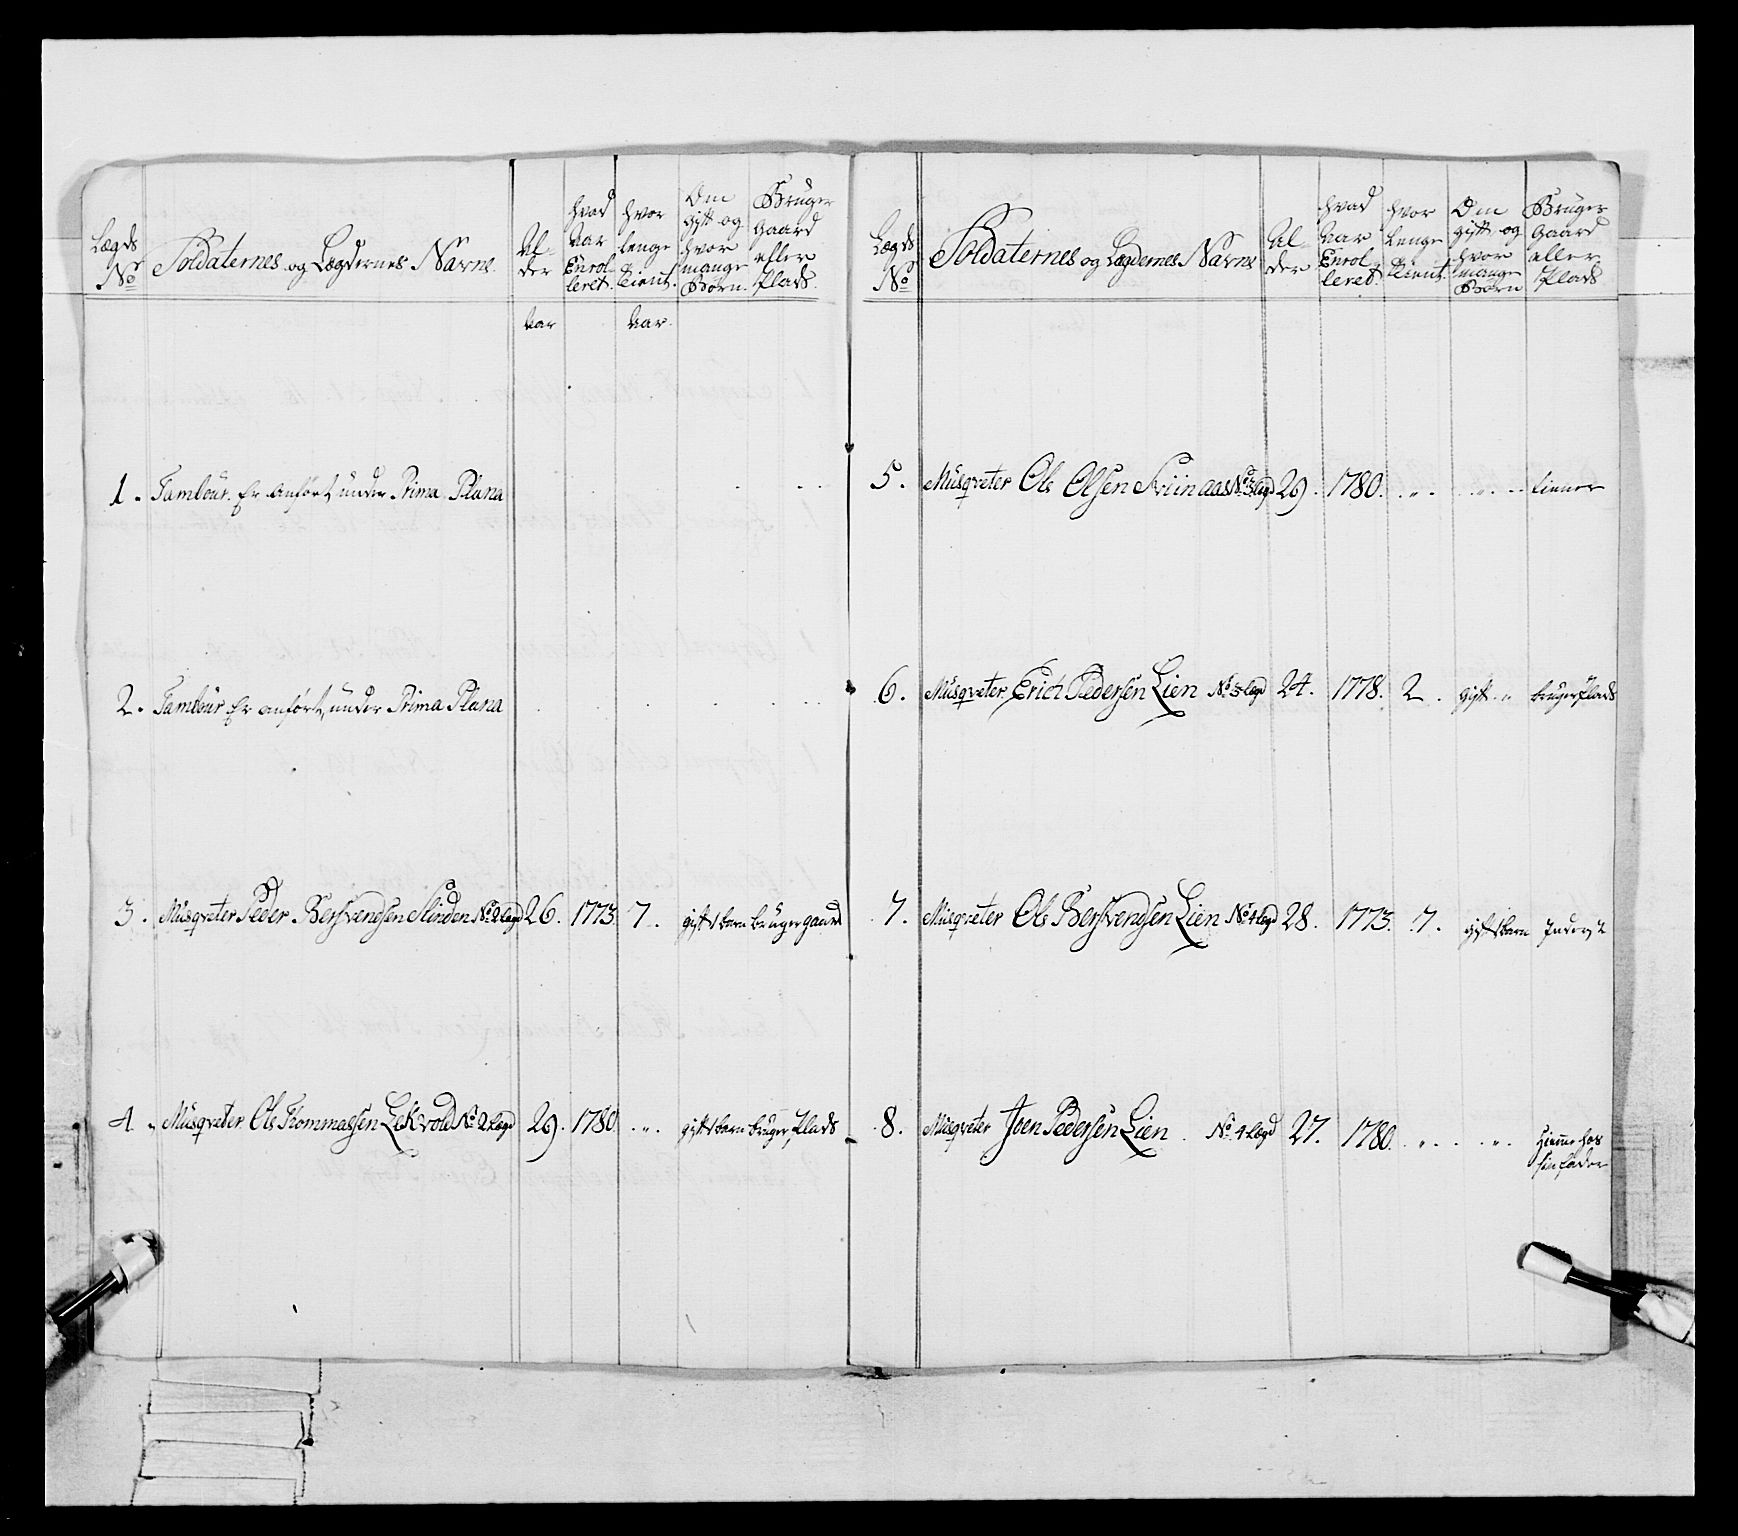 Lægds No Soldaternes og Lægdernes Navne. Al- der hvad Aar Enrol- leret. hvor lenge tient. Om gift og hvor mange Børn. Bruger Gaard eller Plads.
Aar Aar.
1. Tambour. Er anført under Prima Plana
2. Tambour Er anført under Prima Plana
3. Musqveter Peder Berssvendsen Slinden No 2 Lægd 26. 1773. 7. gift 1 barn bruger gaard
4. Musqveter Ole Thommassen Lekvold No 2 Lægd 29. 1780 . „ . gift 1 barn bruger Plads
Lægds No Soldaternes og Lægdernes Navne Al- der hvad Aar Enrol- leret. hvor Lenge tient. Om gift og hvor mange Børn Bruger Gaard eller Plads
5. Musqveter Ole Olsen Sviinaas No 3 Lægd 29. 1780. . „ . . „ . tiener
6. Musqveter Erich Pedersen Lien No 3 Lægd 24. 1778. 2. gift „ bruger Plads
7. Musqveter Ole Berssvendsen Lien No 4 Lægd 28. 1773. 7. gift 1 barn Inderst
8. Musqveter Joen Pedersen Lien No 4 Lægd 27. 1780. . „ . . „ . Hiemme hos
sin fader